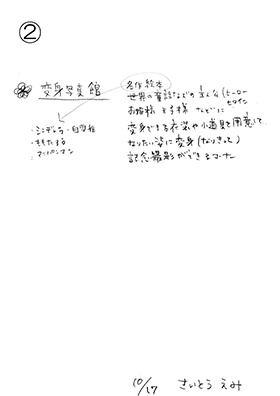 ②
変身写真館
名作絵本
世界の童話などの主人公(ヒーロー
ヒロイン
お姫様 王子様 などに
変身できる衣装や小道具を用意して
なりたい姿に変身(なりきって)
記念撮影ができるコーナー
・シンデレラ・白雪姫
・ももたろう
・アンパンマン
10/17 さいとう えみ